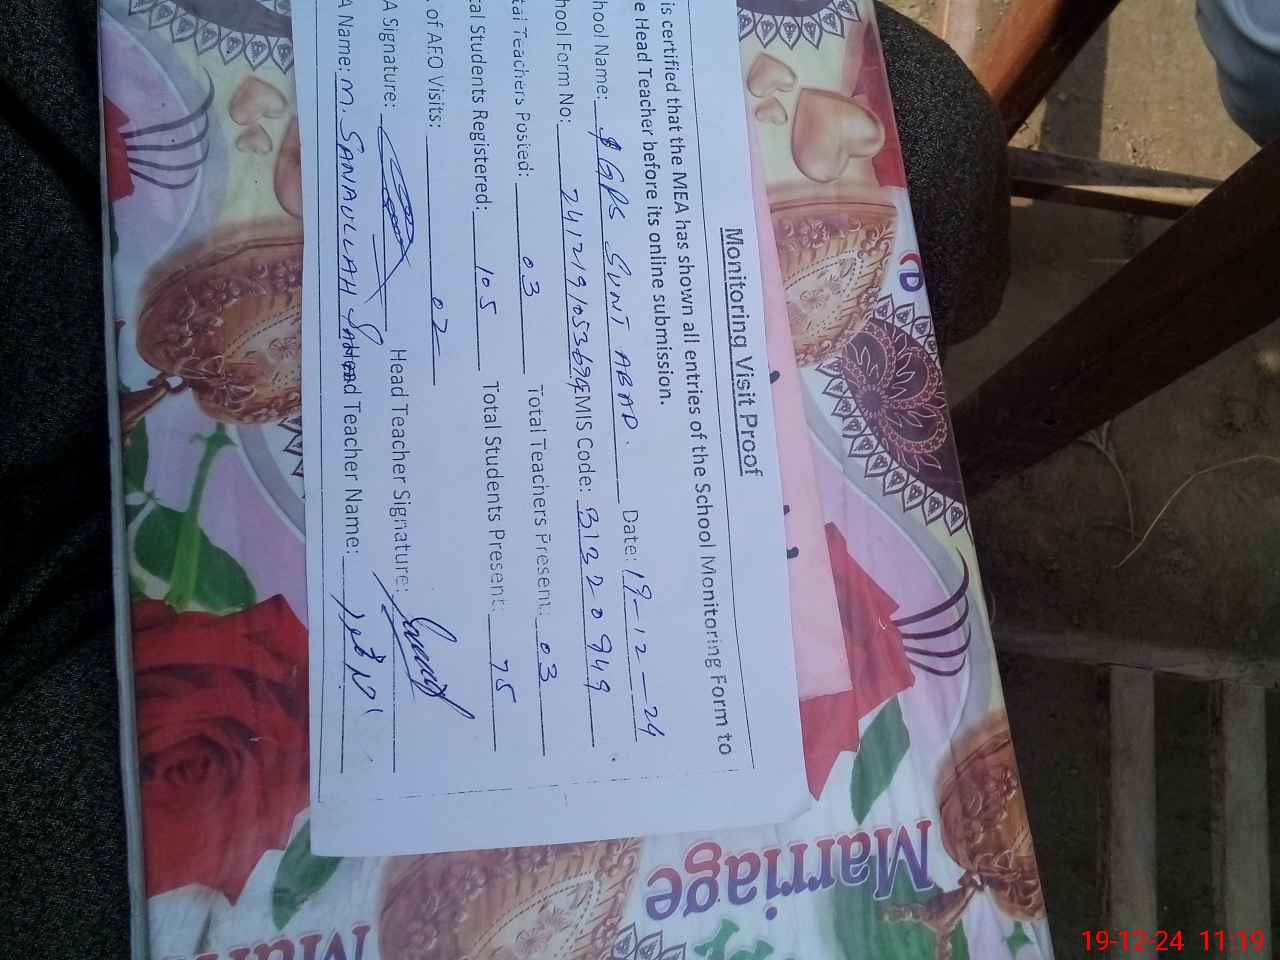 Monitoring Visit Proof
is certified that the MEA has shown all entries of the School Monitoring Form to
e Head Teacher before its online submission.
hool Name: GPS SUNT ABAD. Date: 19-12-24
hool Form No: EMIS Code: 31320949
tal Teachers Posted: 03 Total Teachers Present: 03
tal Students Registered: 105 Total Students Present: 75
. of AEO Visits: 02
A Signature: Head Teacher Signature:
A Name: M. SANAULLAH d Teacher Name:
Marriage
19-12-24 11:19